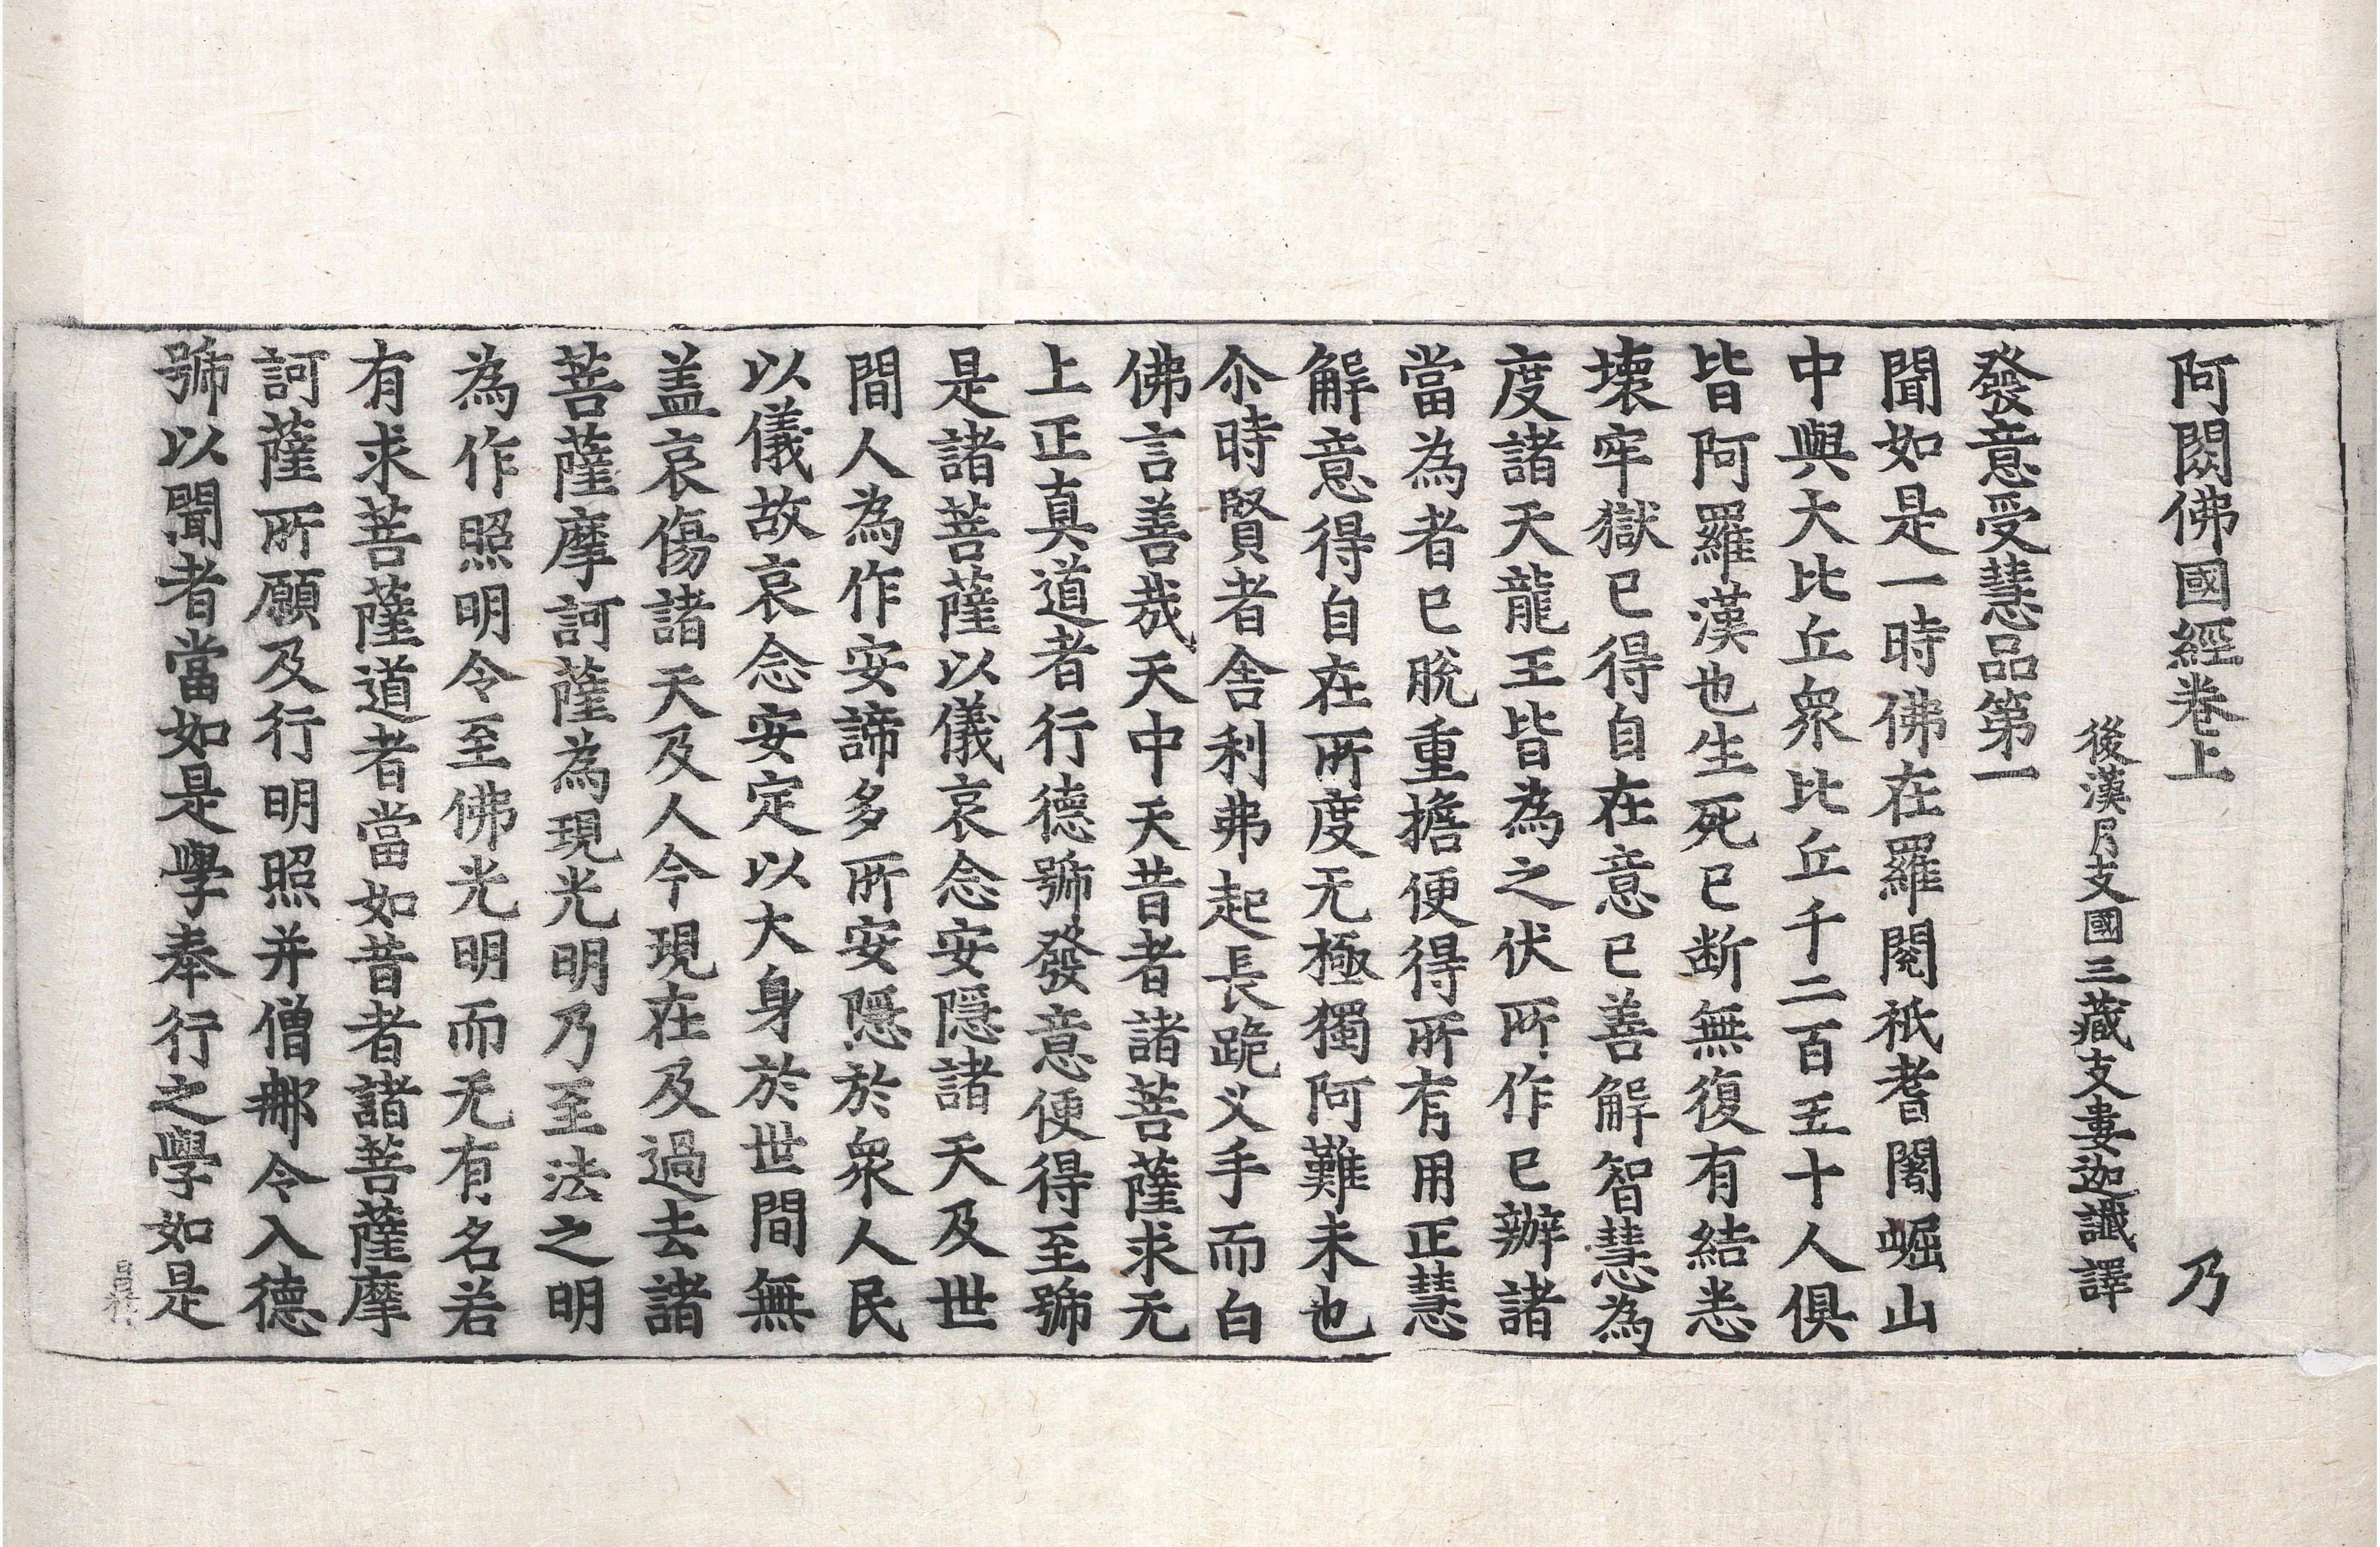 阿閦佛國經卷上 乃
後漢月支國三藏支婁迦讖譯
發意受慧品第一
聞如是一時佛在羅閱祇耆闍崛山
中與大比丘衆比丘千二百五十人俱
皆阿羅漢也生死已断無復有結悉
壞牢獄已得自在意已善解智慧為
度諸天龍王皆為之伏所作已辦諸
當為者已脫重擔便得所有用正慧
解意得自在所度无極獨阿難未也
尒時賢者舍利弗起長跪叉手而白
佛言善哉天中天昔者諸菩薩求无
上正真道者行德號發意便得至號
是諸菩薩以儀哀念安隱諸天及世
間人為作安諦多所安隱於衆人民
以儀故哀念安定以大身於世間無
盖哀傷諸天及人今現在及過去諸
菩薩摩訶薩為現光明乃至法之明
為作照明令至佛光明而无有名若
有求菩薩道者當如昔者諸菩薩摩
訶薩所願及行明照并僧那令入德
號以聞者當如是學奉行之學如是